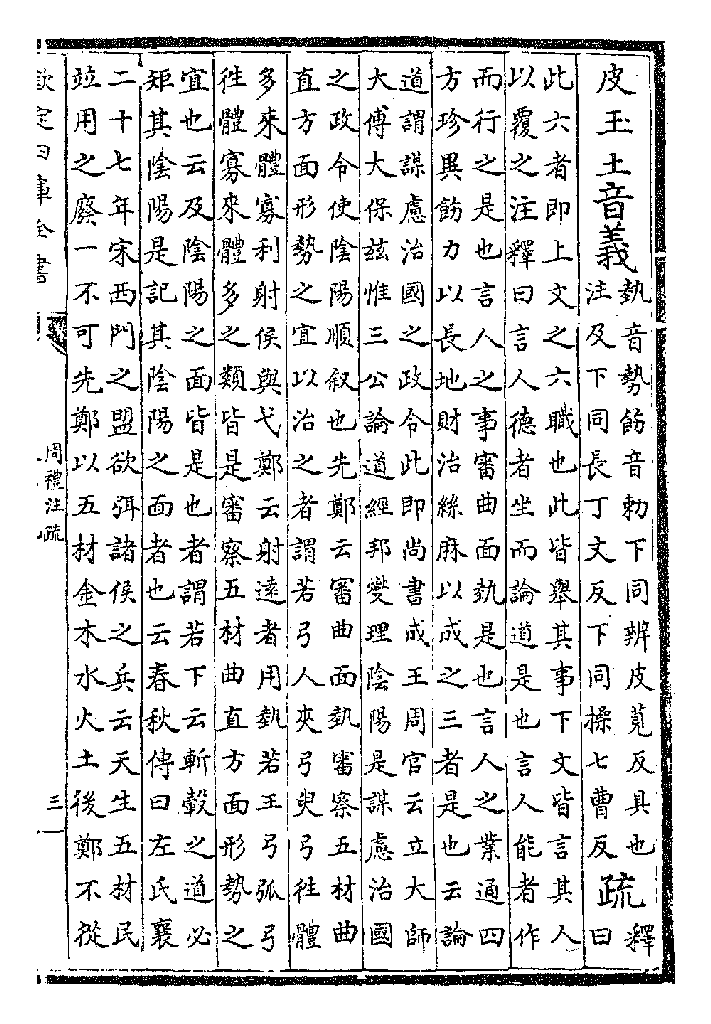 皮玉土音義埶音勢飭音勅下同辨皮莧反具也
注及下同長丁丈反下同操七曹反疏釋
曰
此六者即上文之六職也此皆舉其事下文皆言其人
以覆之注釋曰言人德者坐而論道是也言人能者作
而行之是也言人之事審曲面埶是也言人之業通四
方珍異飭力以長地財治絲麻以成之三者是也云論
道謂謀慮治國之政令此即尚書成王周官云立大師
大傅大保兹惟三公論道經邦燮理陰陽是謀慮治國
之政令使陰陽順叙也先鄭云審曲面埶審察五材曲
直方面形勢之宜以治之者謂若弓人夾弓臾弓徃體
多來體寡利射侯與弋鄭云射遠者用埶若王弓弧弓
徃體寡來體多之類皆是審察五材曲直方面形勢之
宜也云及陰陽之面皆是也者謂若下云斬轂之道必
矩其陰陽是記其陰陽之面者也云春秋傳曰左氏襄
二十七年宋西門之盟欲弭諸侯之兵云天生五材民
並用之廢一不可先鄭以五材金木水火土後鄭不從
欽定四庫全書
周禮注疏
三